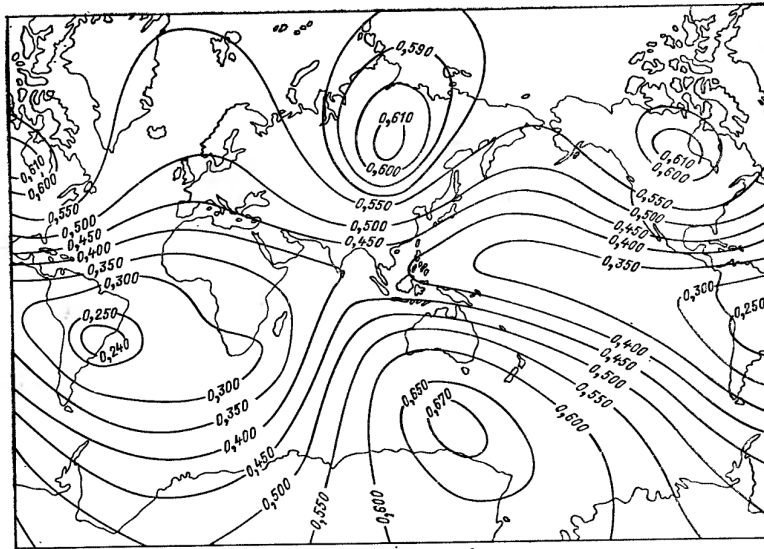 0,590
0,610
0,600
0,550
0,500
0,450
0,610
0,600
0,550
0,500
0,450
0,400
0,350
0,300
0,250
0,240
0,300
0,350
0,400
0,450
0,500
0,550
0,600
0,610
0,600
0,550
0,500
0,450
0,400
0,350
0,300
0,250
0,400
0,450
0,500
0,550
0,600
0,650
0,670